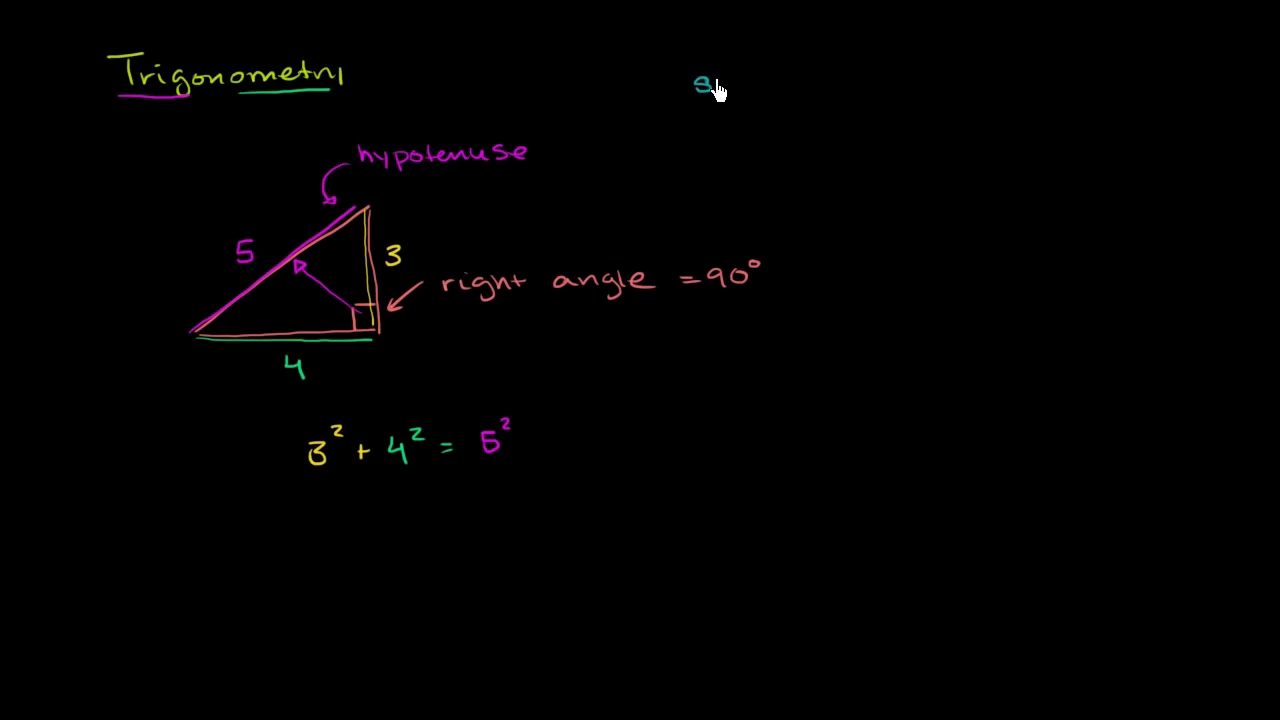 Trigonometry
s
hypotenuse
5
3
right angle = 90°
4
3² + 4² = 5²